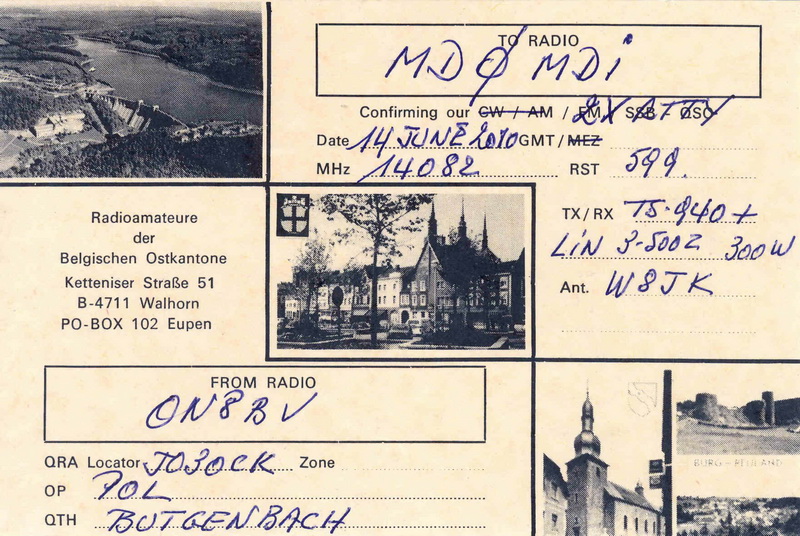 TO RADIO
MDØMDi
Confirming our CW / AM / FM / SSB / QSO 2X ATTY
Date 14 JUNE 2010 GMT / MEZ
MHz 14082 RST 599.
Radioamateure
der
Belgischen Ostkantone
Ketteniser Straße 51
B-4711 Walhorn
PO-BOX 102 Eupen
TX / RX TS-940+
LiN 3-500Z 300W
Ant. W8JK
FROM RADIO
ON8BV
QRA Locator JO30CK Zone
OP POL
QTH BUTGENBACH
BURG - REULAND